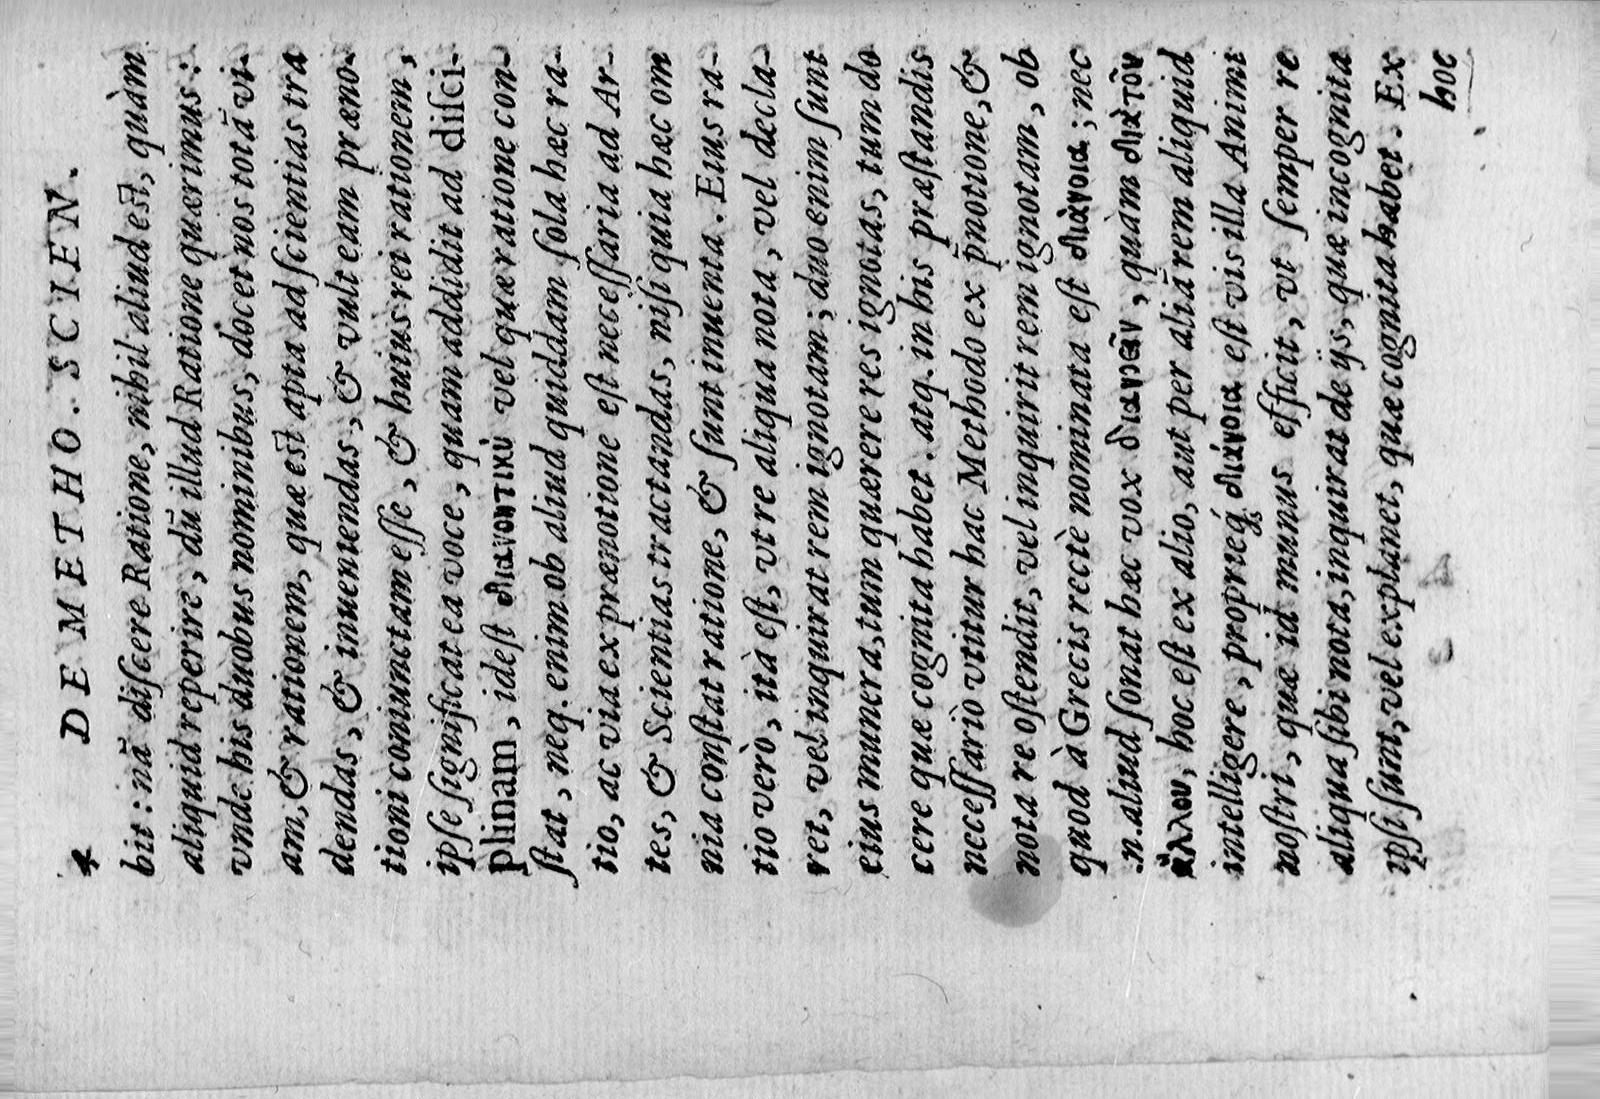 4 DE METHO. SCIEN.
bit: nā diſcere Ratione, nihil aliud est, quàm
aliquid reperire, dū illud Ratione quærimus:
vnde his duobus nominibus, docet nos totā vi-
am, & rationem, quæ est apta ad ſcientias tra
dendas, & inueniendas, & vult eam præno-
tioni coniunctam eſſe, & huius rei rationem,
ipſe ſignificat ea voce, quam addidit ad diſci-
plinam, ideſt διανοητικὺ vel quæ ratione con-
ſtat, neq. enim ob aliud quiddam ſola hæc ra-
tio, ac via ex prænotione eſt neceſſaria ad Ar-
tes, & Scientias tractandas, niſi quia hæc om
nia conſtat ratione, & ſunt inuenta. Eius ra-
tio verò, ità eſt, vt re aliqua nota, vel decla-
ret, vel inquirat rem ignotam; duo enim ſunt
eius munera, tum quærere res ignotas, tum do
cere quæ cognita habet. atq. in his præſtandis
neceſſariò vtitur hac Methodo ex p̄notione, &
nota re oſtendit, vel inquirit rem ignotam, ob
quod à Grecis rectè nominata eſt διὰνοια; nec
.n. aliud ſonat hæc vox διανοεῖν, quàm διὰ τοῦ
ἄλλου, hoc eſt ex alio, aut per aliā rem aliquid
intelligere, proprieq́ διάνοια eſt vis illa Animi
noſtri, quæ id munus efficit, vt ſemper re
aliqua ſibi nota, inquirat de ijs, quæ incognita
ipſi ſunt, vel explanet, quæ cognita habet. Ex
hoc